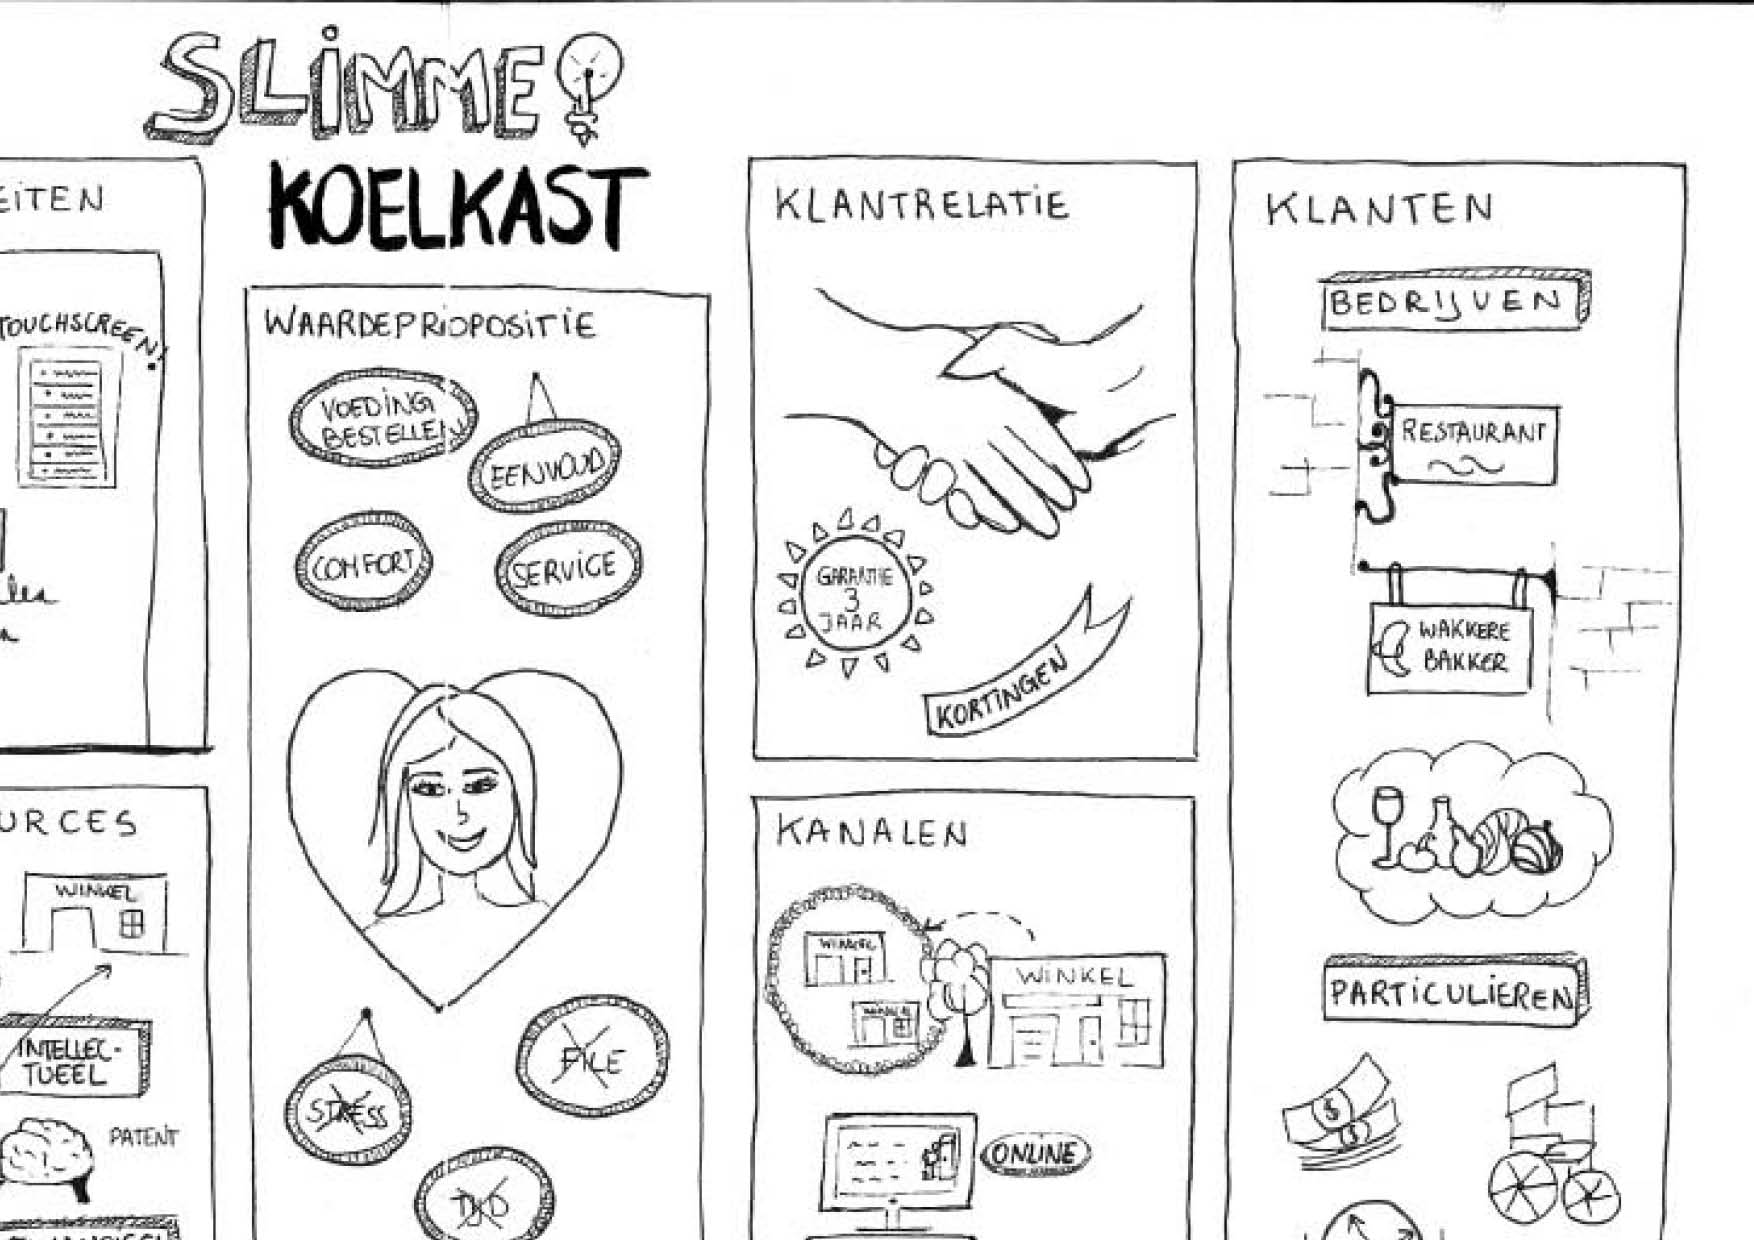 SLIMME
KOELKAST
EITEN
TOUCHSCREEN!
URCES
WINKEL
INTELLEC-
TUEEL
PATENT
WAARDEPROPOSITIE
VOEDING
BESTELLEN
EENVOUD
COMFORT
SERVICE
FILE
STRESS
KLANTRELATIE
GARANTIE
3
JAAR
KORTINGEN
KANALEN
WINKEL
WINKEL
WINKEL
ONLINE
KLANTEN
BEDRIJVEN
RESTAURANT
WAKKERE
BAKKER
PARTICULIEREN
$
$